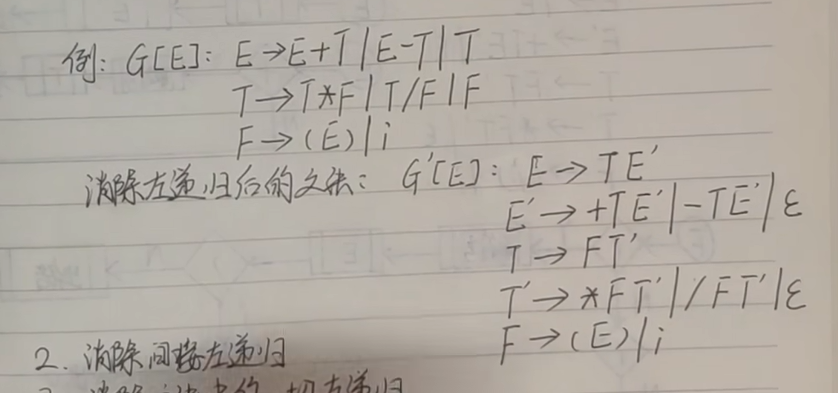 例: G[E]: E→E+T|E-T|T
T→T*F|T/F|F
F→(E)|i
消除左递归后的文法: G'[E]: E→TE'
E'→+TE'|-TE'|ε
T→FT'
T'→*FT'|/FT'|ε
F→(E)|i
2. 消除间接左递归
一切左递归